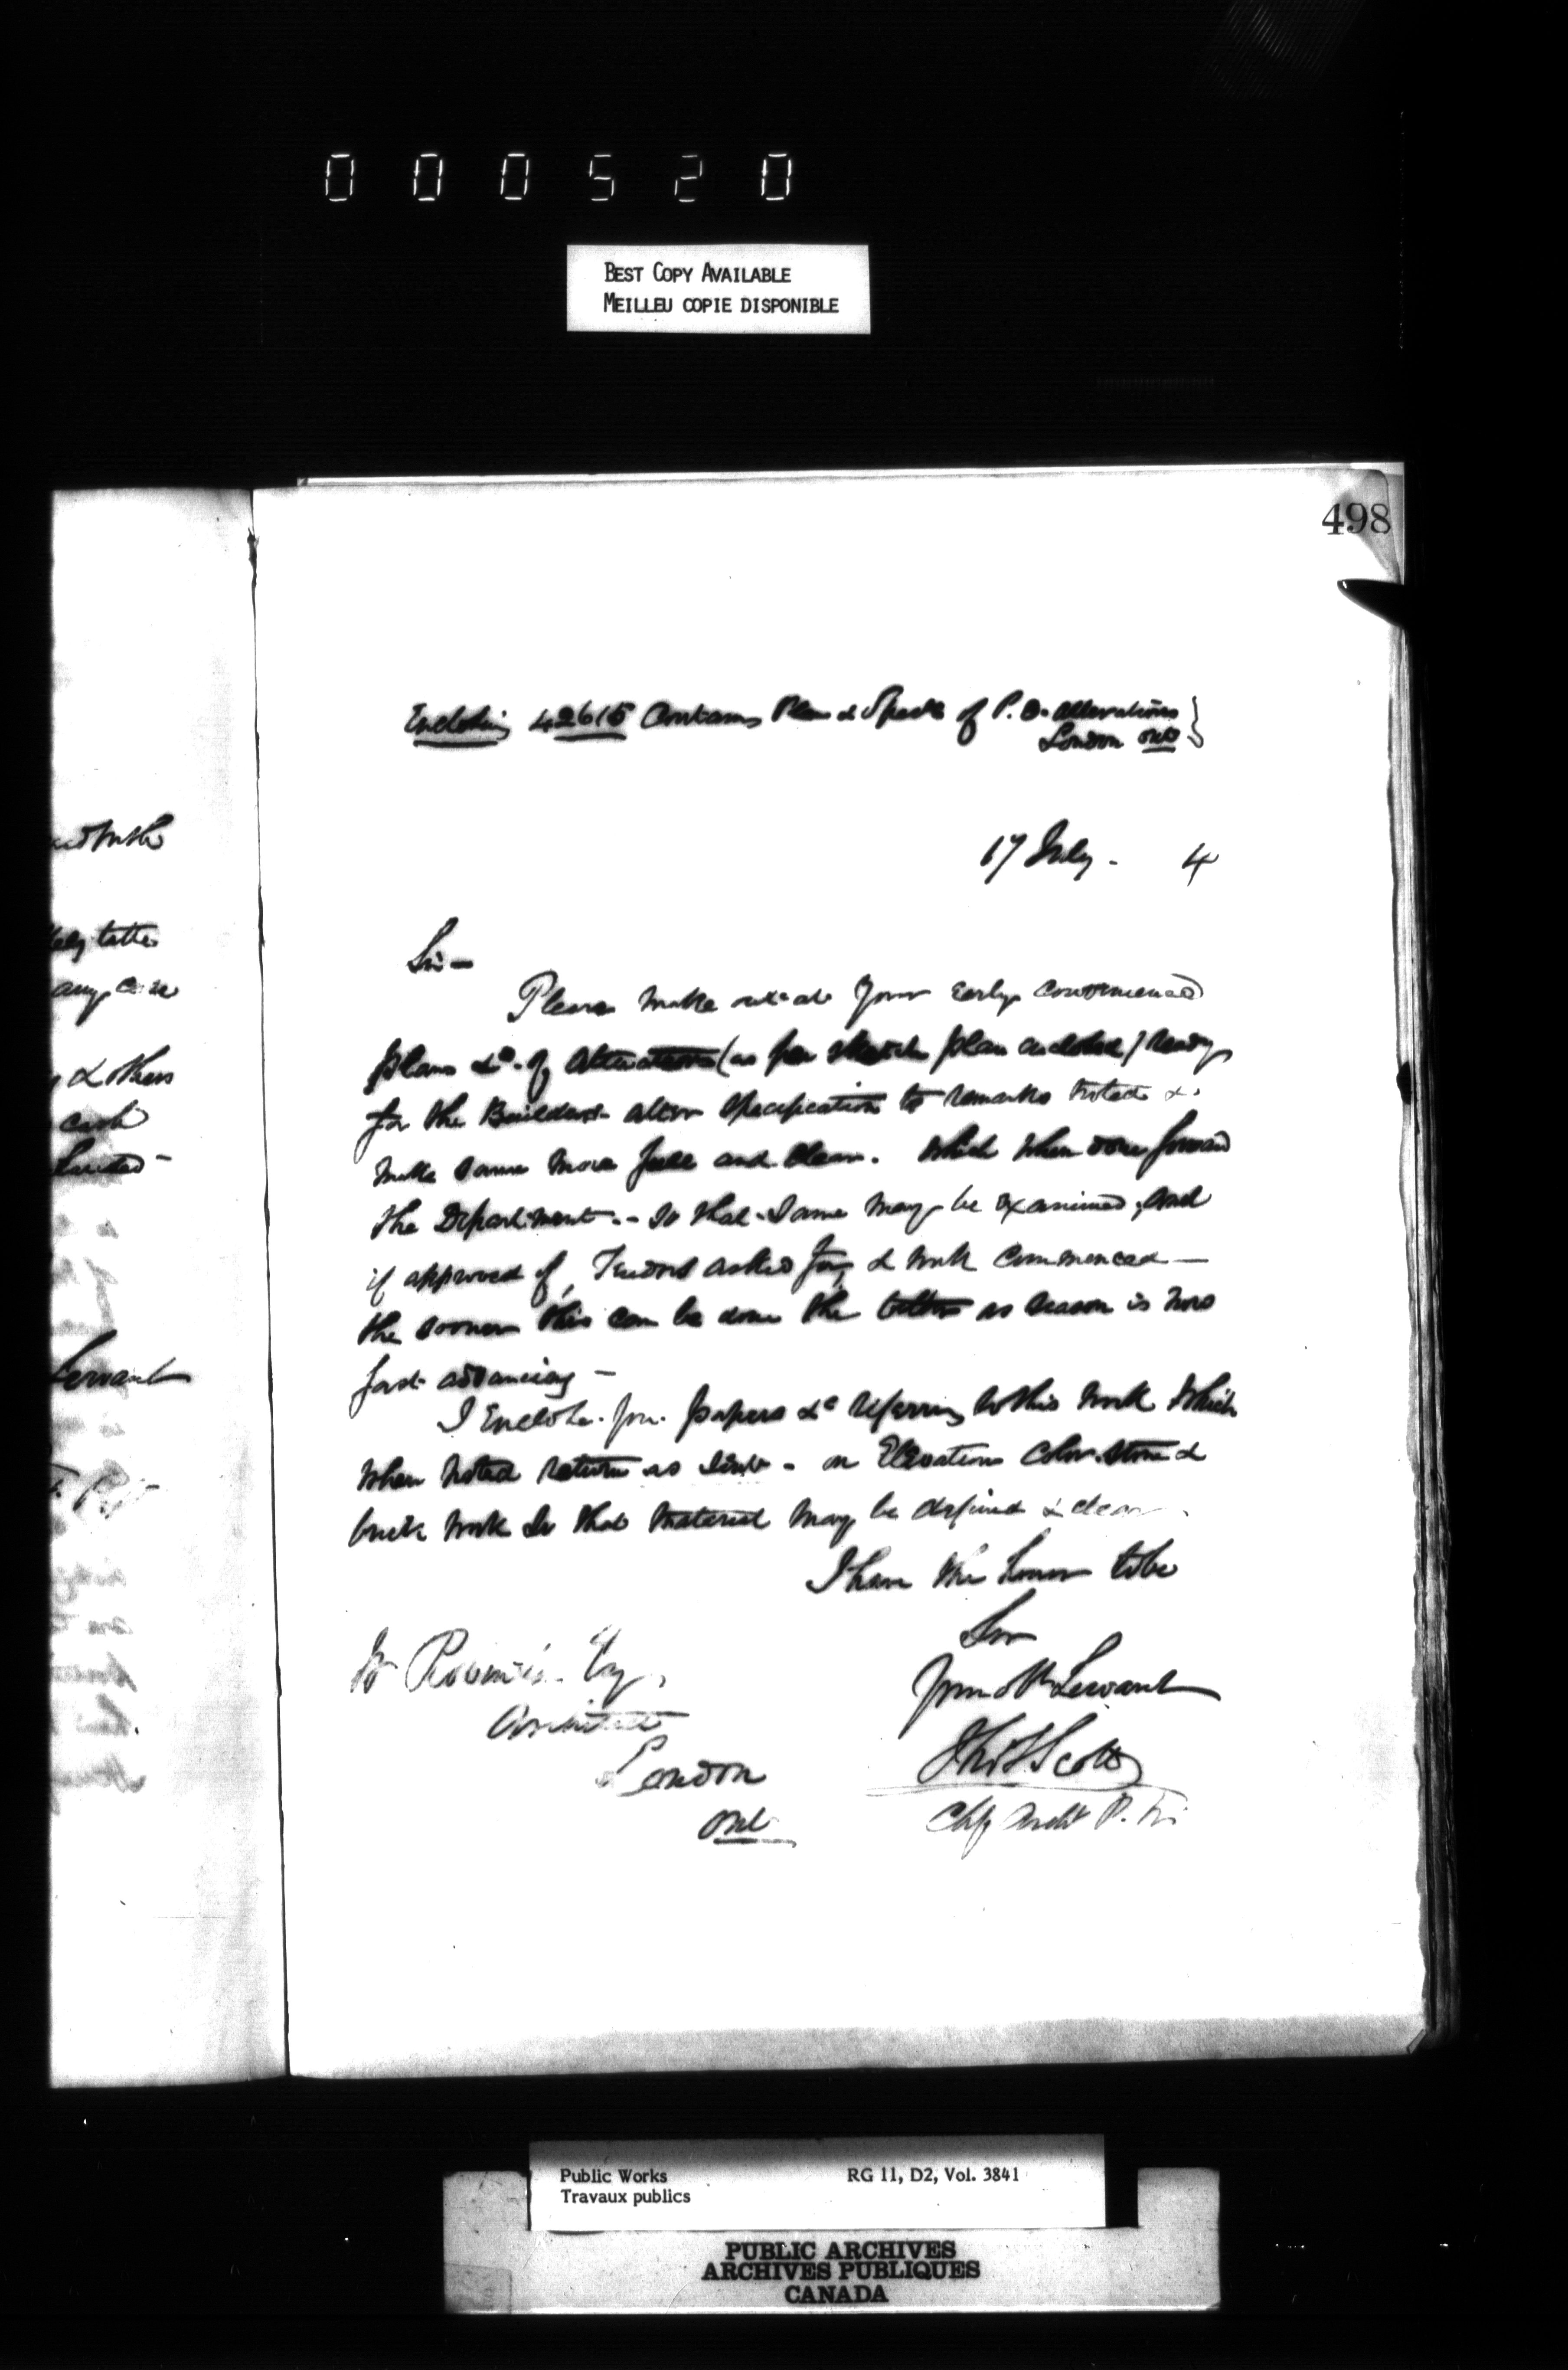 000520
BEST COPY AVAILABLE
MEILLEU COPIE DISPONIBLE
498
Enclosing 42615 Contains Plan & Spec's of P.O. alterations
London Ont
17 July - 4
Sir -
Please make out at your early convenience
plans &c. of alterations (as per sketch plan enclosed) ready
for the Builders - alter specification to remarks noted &
make same more full and clear. Which when done forward
the Department - so that same may be examined, and
if approved of, Tenders asked for, & work commenced -
the sooner this can be done the better as season is now
fast advancing -
I Enclose you papers &c referring to this work which
when noted return as sent - on Elevations color stone &
brick work so that material may be defined & clear.
I have the honor to be
Sir
Your Ob Servant
W Robinson Esq,
Architect
London
Ont
Thos S Scott
Chf Archt P. W.
any case
& others
cash
Servant
Public Works
Travaux publics
RG 11, D2, Vol. 3841
PUBLIC ARCHIVES
ARCHIVES PUBLIQUES
CANADA